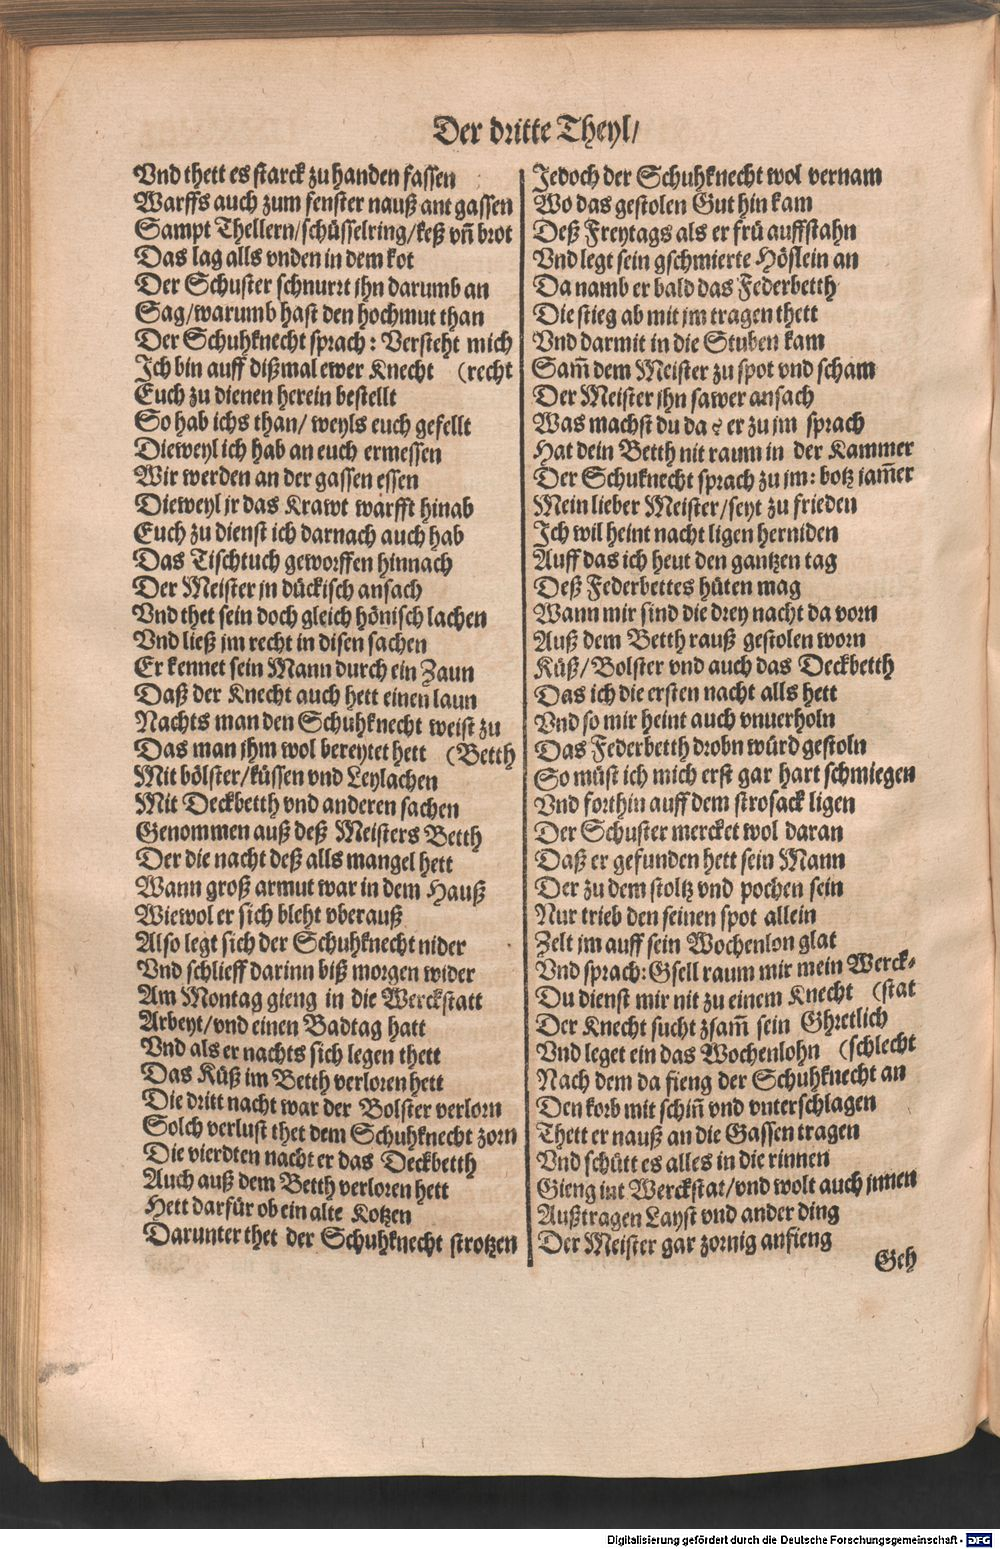 Der dritte Theyl/
Vnd thett es starck zu handen fassen
Warffs auch zum fenster nauß ant gassen
Sampt Thellern/schüsselring/keß vñ brot
Das lag alls vnden in dem kot
Der Schuster schnurrt ihn darumb an
Sag/warumb hast den hochmut than
Der Schuhknecht sprach: Versteht mich
Ich bin auff dißmal ewer Knecht (recht
Euch zu dienen herein bestellt
So hab ichs than/ weyls euch gefellt
Dieweyl ich hab an euch ermessen
Wir werden an der gassen essen
Dieweyl jr das Krawt warfft hinab
Euch zu dienst ich darnach auch hab
Das Tischtuch geworffen hinnach
Der Meister jn dückisch ansach
Vnd thet sein doch gleich hönisch lachen
Vnd ließ jm recht in disen sachen
Er kennet sein Mann durch ein Zaun
Daß der Knecht auch hett einen laun
Nachts man den Schuhknecht weist zu
Das man ihm wol bereytet hett (Betth
Mit bölster/küssen vnd Leylachen
Mit Deckbetth vnd anderen sachen
Genommen auß deß Meisters Betth
Der die nacht deß alls mangel hett
Wann groß armut war in dem Hauß
Wiewol er sich bleht vberauß
Also legt sich der Schuhknecht nider
Vnd schlieff darinn biß morgen wider
Am Montag gieng in die Werckstatt
Arbeyt/vnd einen Badtag hatt
Vnd als er nachts sich legen thett
Das Küß im Betth verloren hett
Die dritt nacht war der Bolster verlorn
Solch verlust thet dem Schuhknecht zorn
Die vierdten nacht er das Deckbetth
Auch auß dem Betth verloren hett
Hett darfür ob ein alte Kotzen
Darunter thet der Schuhknecht strotzen
Jedoch der Schuhknecht wol vernam
Wo das gestolen Gut hin kam
Deß Freytags als er frü auffstahn
Vnd legt sein gschmierte Höslein an
Da namb er bald das Federbetth
Die stieg ab mit jm tragen thett
Vnd darmit in die Stuben kam
Sam̃ dem Meister zu spot vnd scham
Der Meister ihn sawer ansach
Was machst du da? er zu jm sprach
Hat dein Betth nit raum in der Kammer
Der Schuknecht sprach zu jm: botz jam̃er
Mein lieber Meister/seyt zu frieden
Ich wil heint nacht ligen herniden
Auff das ich heut den gantzen tag
Deß Federbettes hüten mag
Wann mir sind die drey nacht da vorn
Auß dem Betth rauß gestolen worn
Küß/Bolster vnd auch das Deckbetth
Das ich die ersten nacht alls hett
Vnd so mir heint auch vnuerholn
Das Federbetth drobn würd gestoln
So müst ich mich erst gar hart schmiegen
Vnd forthin auff dem strosack ligen
Der Schuster mercket wol daran
Daß er gefunden hett sein Mann
Der zu dem stoltz vnd pochen sein
Nur trieb den seinen spot allein
Zelt jm auff sein Wochenlon glat
Vnd sprach: Gsell raum mir mein Werck-
Du dienst mir nit zu einem Knecht (stat
Der Knecht sucht zsam̃ sein Ghretlich
Vnd leget ein das Wochenlohn (schlecht
Nach dem da fieng der Schuhknecht an
Den korb mit schiñ vnd vnterschlagen
Thett er nauß an die Gassen tragen
Vnd schütt es alles in die rinnen
Gieng int Werckstat/vnd wolt auch jnnen
Außtragen Layst vnd ander ding
Der Meister gar zornig anfieng
Geh
Digitalisierung gefördert durch die Deutsche Forschungsgemeinschaft - DFG